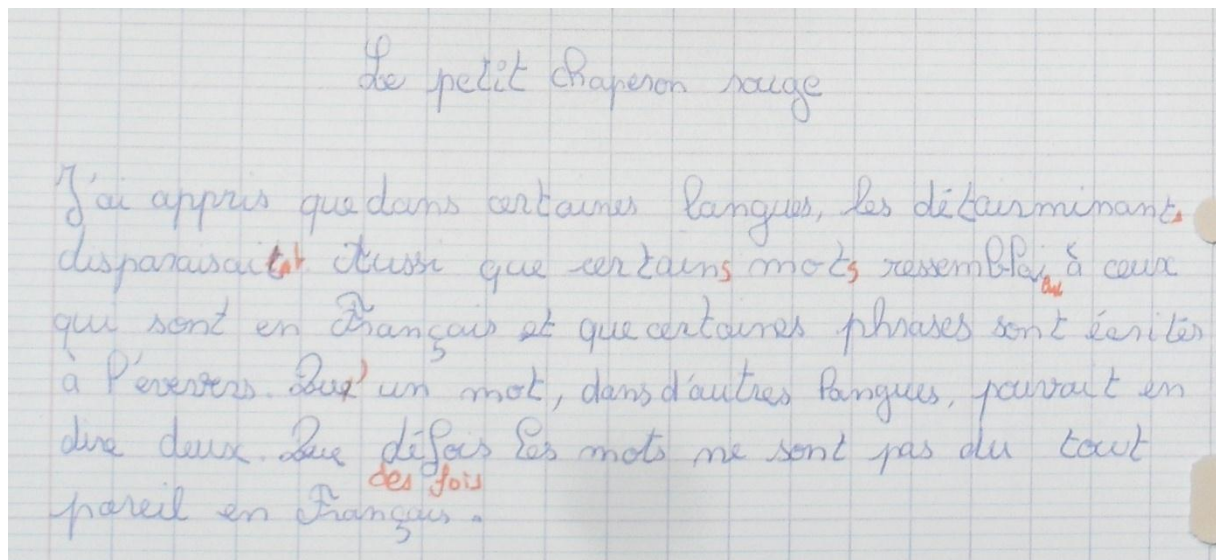 Le petit chaperon rouge
J'ai appris que dans certaines langues, les détairminants
disparaisait Aussi que certains mots ressemblai à ceux
qui sont en Français et que certaines phrases sont écrites
à l'envevers. Qu' un mot, dans d'autres langues, pouvait en
dire deux. Que défois les mots ne sont pas du tout
des fois
pareil en Français.